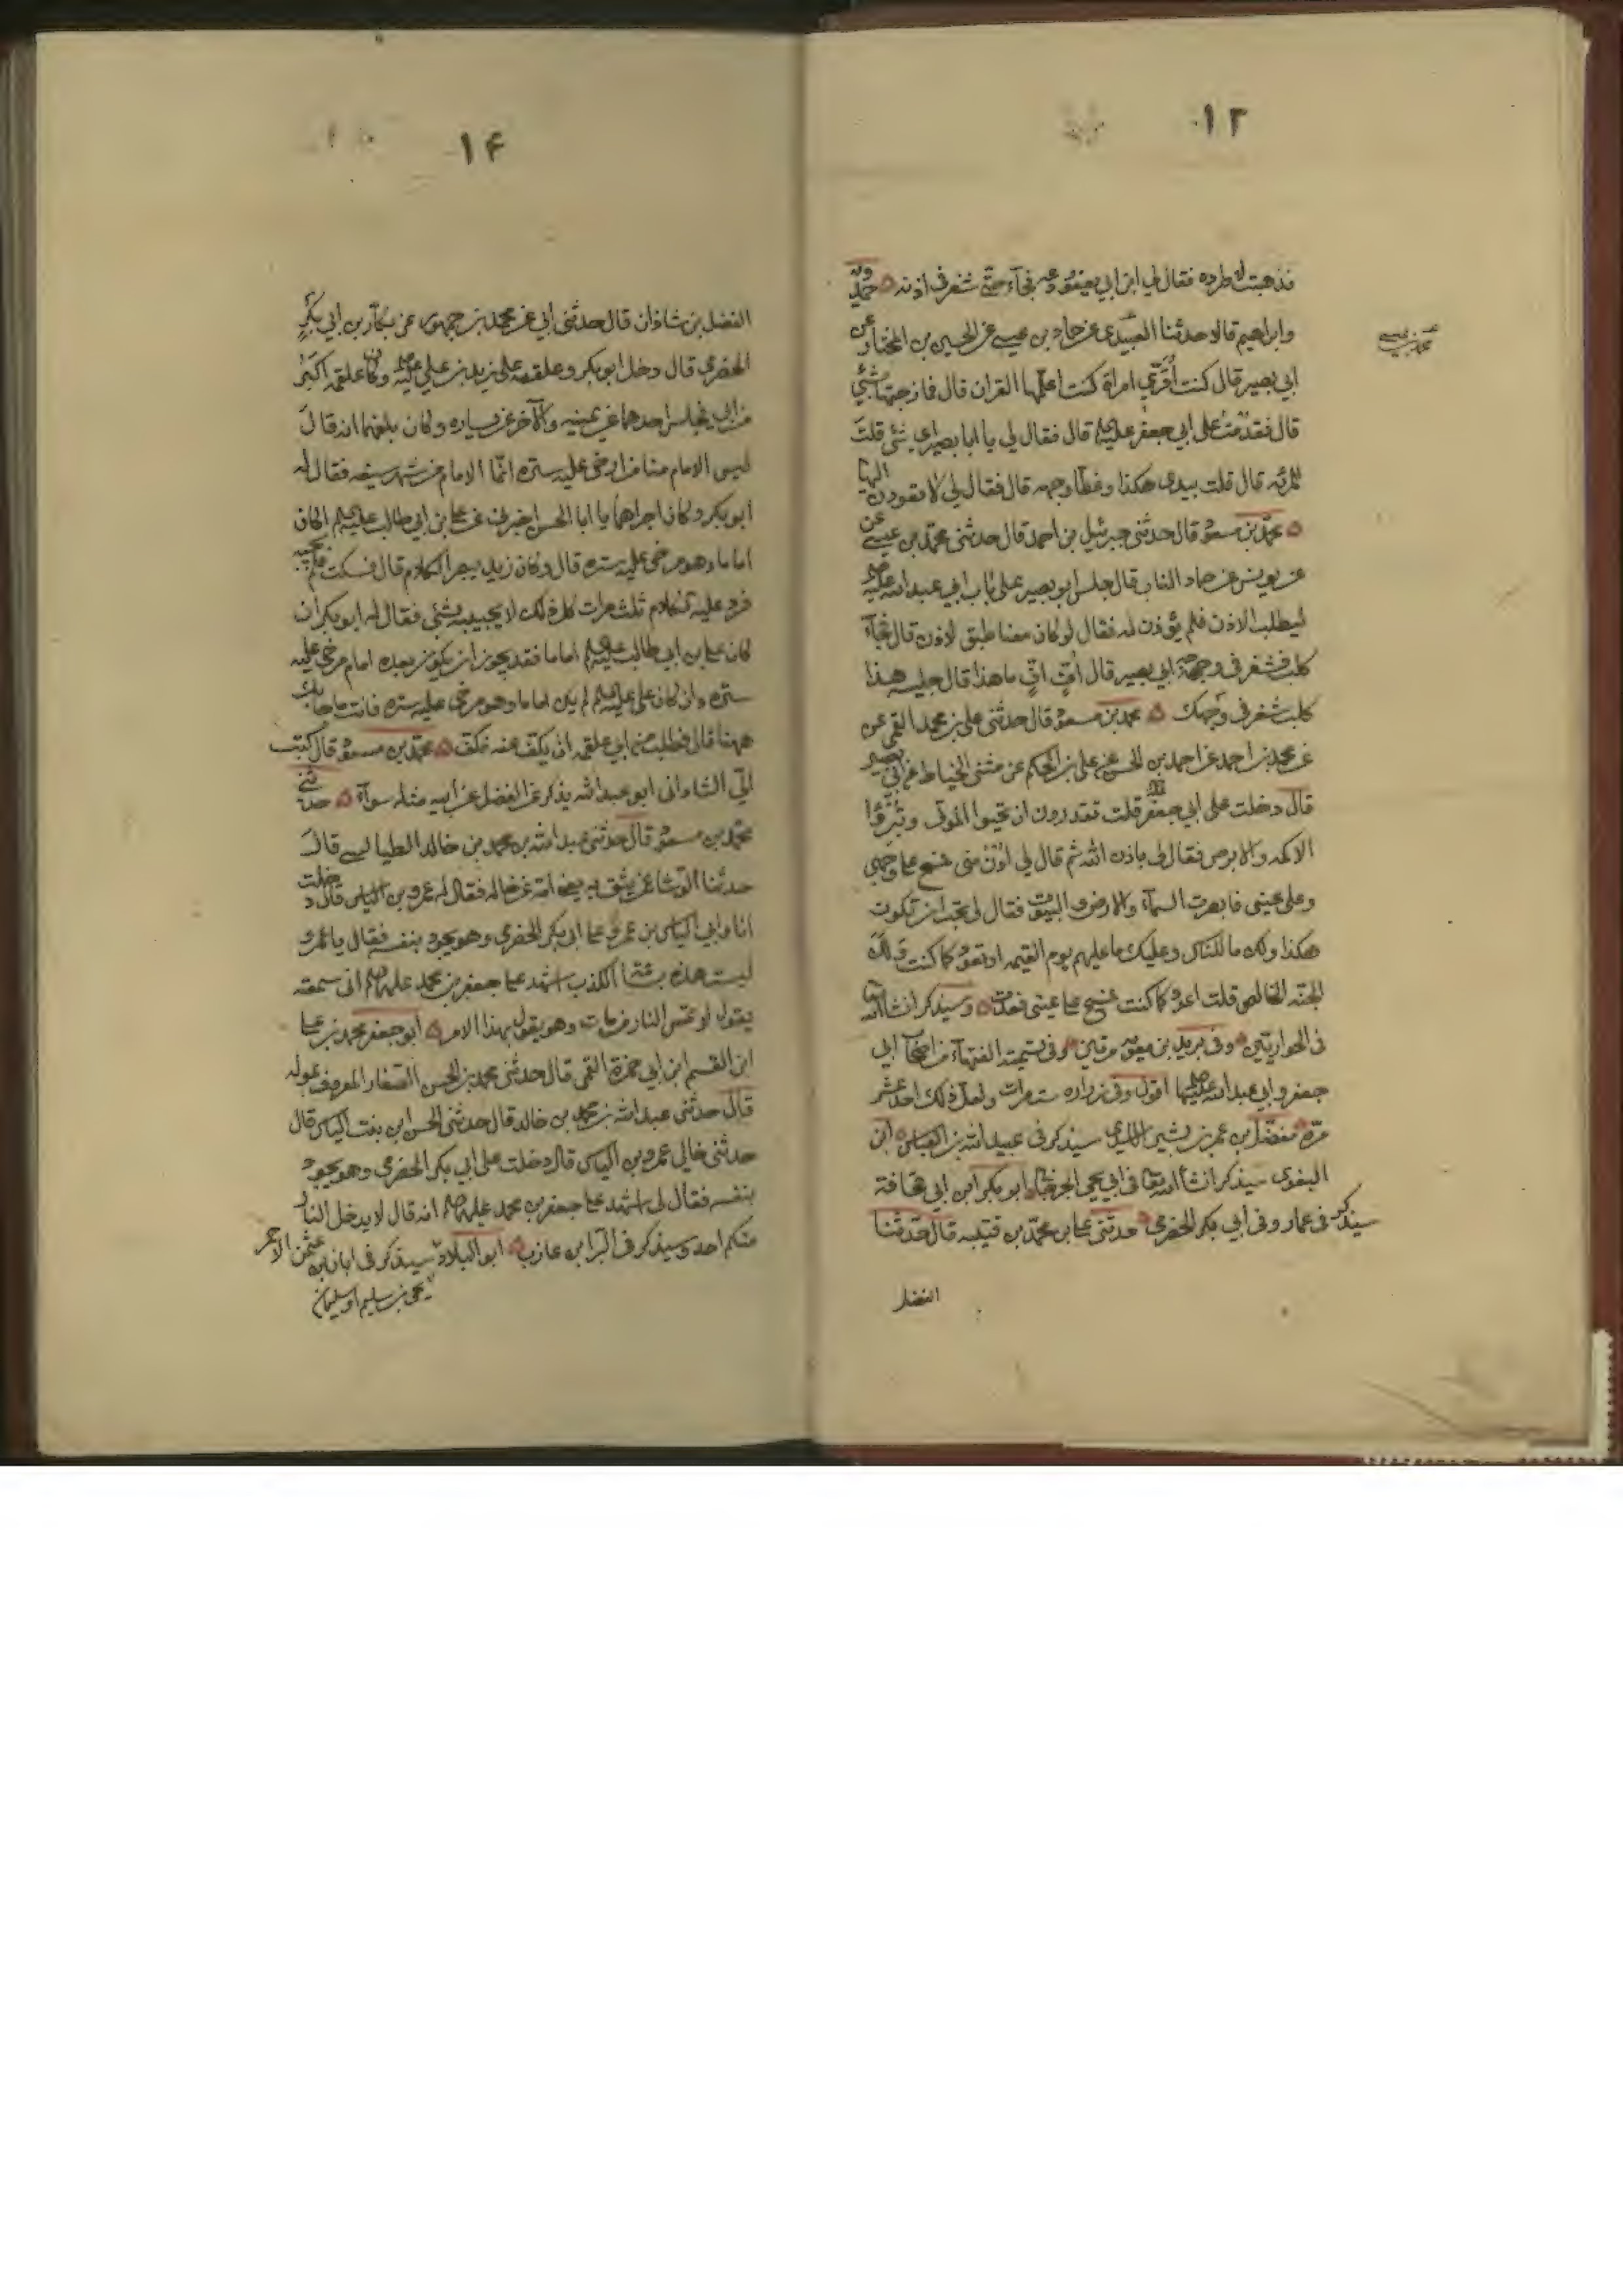 ۱۳
فذهبت لاطرده فقال لي ابن ابي يعفور دعه فجآء حتى شغر في اذنه حمدويه
وابراهيم قالا حدثنا العبيدي عن حماد بن عيسى عن الحسين بن المختار عن
ابي بصير قال كنت اُقرئ امراة كنت اعلّمها القران قال فمازحتها بشئ
قال فقدمتُ على ابي جعفر عليه السلم قال فقال لي يا ابا بصير اي شئ قلت
للمرئة قال قلت بيدي هكذا وغطّا وجهه قال فقال لي لا تعودن اليها
محمد بن مسعود قال حدثني جبرئيل بن احمد قال حدثني محمد بن عيسى عن
عن يونس عن حماد الناب قال جلس ابو بصير على باب ابي عبد الله عليه
ليطلب الاذن فلم يؤذن له فقال لو كان معنا طبق لاذن قال فجآء
كلب فشغر في وجه ابي بصير قال اُفٍّ افٍّ ما هذا قال جليسه هذا
كلب شغر في وجهك محمد بن مسعود قال حدثني علي بن محمد القمي عن
عن محمد بن احمد عن احمد بن الحسن عن علي بن الحكم عن مثنى الخياط عن ابي بصير
قال دخلت على ابي جعفر قلت تقدرون ان تحيوا الموتى وتبرؤا
الاكمه والابرص فقال لي باذن الله ثم قال لي اُدْنُ منى فمسح على وجهي
وعلى عينى فابصرت السمآء والارض والبيوت فقال لي تحب ان تكون
هكذا ولك ما للناس وعليك ما عليهم يوم القيمه او تعود كما كنت ولك
الجنه الخالص قلت اعود كما كنت فمسح على عينى فعدت وسيذكر انشاالله
فى الحواريين وفى بريد بن معويه مرتين وفى تسميه الفقهاء من اصحاب ابي
جعفر وابي عبد الله عليهما اقول وفى زراره ست مرات ولعل ذلك احد عشر
مرّة مفضّل بن عمر بن بشير سيذكر فى عبيد الله بن العباس ابن
البغوى سيذكر انشاالله تعا فى ابي يحيى الجرجانى ابو بكر ابن ابي قحافة
سيذكر فى عمار وفى ابي بكر الحضرمى حدثنى على بن محمد بن قتيبه قال حدثنا
الفضل
۱۴
الفضل بن شاذان قال حدثنى ابي عن محمد بن جمهور عن بكار بن ابي بكر
الحضرمي قال دخل ابو بكر وعلقمه على زيد بن علي عليه وكان علقمه اكبر
من ابي فجلس احدهما عن يمينه والآخر عن يساره وكان بلغهما انه قال
ليس الامام منا من ارخى عليه ستره انّما الامام من شهر سيفه فقال له
ابو بكر وكان اجراهما يا ابا الحسن اخبرني عن على بن ابي طالب عليه السلم اكان
اماما وهو مرخى عليه ستره قال وكان زيد يبصر الكلام قال فسكت فلم يجبه
فرد عليه الكلام ثلث مرات كل ذلك لا يجيبه بشئ فقال له ابو بكر ان
كان على بن ابي طالب عليه السلم اماما فقد يجوز ان يكون بعده امام مرخى عليه
ستره وان كان على عليه السلم لم يكن اماما وهو مرخى عليه ستره فانت ما جاء بك
ههنا قال فطلب من ابي علقمه ان يكف عنه فكف محمد بن مسعود قال كتب
الىّ الشاذانى ابو عبد الله يذكر عن الفضل عن ابيه مثله سوآء حدثنى
محمد بن مسعود قال حدثنى عبد الله بن محمد بن خالد الطيالسى قال
حدثنا الوشا عن يثق به يعنى امه عن خاله فقال له عمرو بن الياس قال دخلت
انا وابي الياس بن عمرو على ابي بكر الحضرمي وهو يجود بنفسه فقال يا عمرو
ليست هذه بساعة الكذب اشهد على جعفر بن محمد عليهما السلم انى سمعته
يقول لا تمس النار من مات وهو يقول بهذا الامر ابو جعفر محمد بن على
ابن القسم ابن ابي حمزة القمى قال حدثنى محمد بن الحسن الصفار المعروف بممولة
قال حدثنى عبد الله بن محمد بن خالد قال حدثنى الحسن ابن بنت الياس قال
حدثنى خالى عمرو بن الياس قال دخلت على ابي بكر الحضرمى وهو يجود
بنفسه فقال لى اشهد على جعفر بن محمد عليهما السلم انه قال لا يدخل النار
منكم احد وسيذكر فى البرا بن عازب ابو البلاد سيذكر فى ابان بن عثمن الاحمر
يحيى بن سليم او سليمان